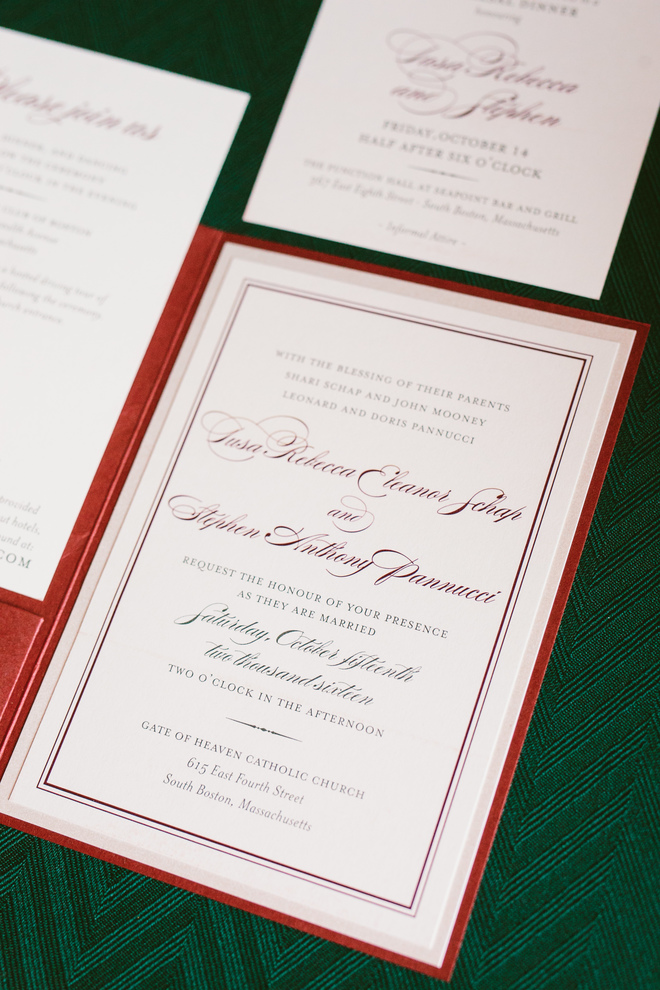 Please join us
DINNER, AND DANCING
THE CEREMONY
O'CLOCK IN THE EVENING
CLUB OF BOSTON
Avenue
following the ceremony.
church entrance
provided
at hotels,
at:
.COM
DINNER
honoring
Susa Rebecca
and Stephen
FRIDAY, OCTOBER 14
HALF AFTER SIX O'CLOCK
THE FUNCTION HALL AT SEAPOINT BAR AND GRILL
367 East Eighth Street - South Boston, Massachusetts
- Informal Attire -
WITH THE BLESSING OF THEIR PARENTS
SHARI SCHAP AND JOHN MOONEY
LEONARD AND DORIS PANNUCCI
Susa Rebecca Eleanor Schap
and
Stephen Anthony Pannucci
REQUEST THE HONOUR OF YOUR PRESENCE
AS THEY ARE MARRIED
Saturday, October fifteenth
two thousand sixteen
TWO O'CLOCK IN THE AFTERNOON
GATE OF HEAVEN CATHOLIC CHURCH
615 East Fourth Street
South Boston, Massachusetts